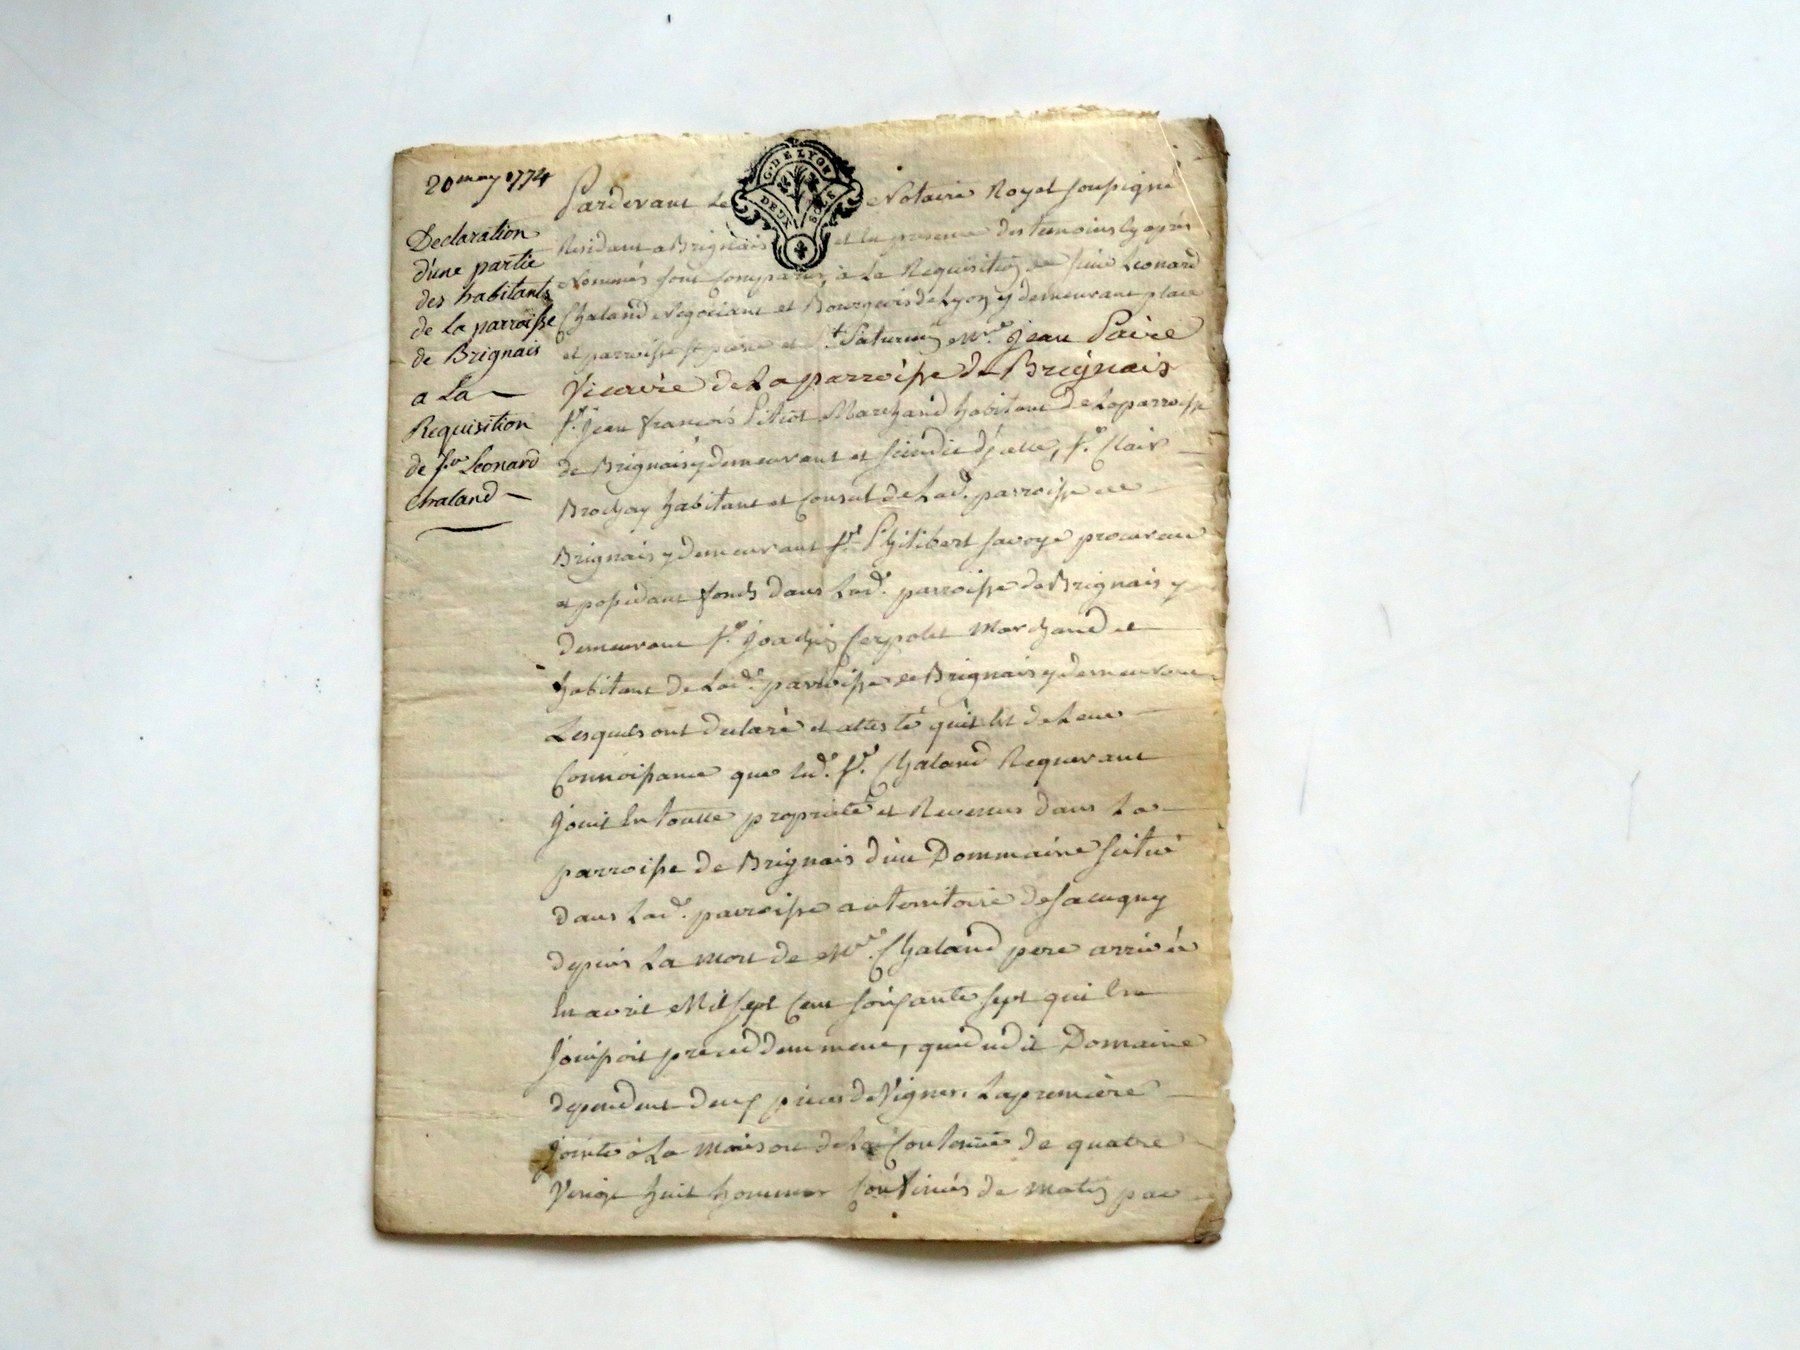 20 may 1774
Declaration
d'une partie
des habitants
de la parroisse
de Brignais
a La
Requisition
de Sr. Leonard
Chaland
G. DE LYON
DEUX SOLS
Pardevant Le Notaire Royal soussigné
Residant a Brignais et en presence des temoins cy après
Nommés sont comparus, a La Requisition de sieur Leonard
Chaland Negociant et Bourgeois de Lyon y demeurant place
et parroisse st pierre et St. Saturnin Mre. Jean Paire
Vicaire de La parroisse de Brignais
Sr. Jean francois Pitiot Marchand habitant de La parroisse
de Brignais y demeurant et scindic d'jcelle, Sr. Clair
Brochay habitant et Consul de Lad. parroisse de
Brignais y demeurant Sr. Philibert Savoye procureur
et possedant fonds dans Lad. parroisse de Brignais y
demeurant Sr. Joachin Marchand et
habitant de Lad. parroisse de Brignais y demeurant
Lesquels ont declaré et attesté qu'il est de Leur
Connoissance que Led. Sr. Chaland Requerant
Jouit En toutte proprieté et Revenus dans La
parroisse de Brignais d'un Dommaine situé
dans Lad. parroisse au territoire de Sacugny
depuis La mort de Mr. Chaland pere arrivée
En avril Mil sept Cent soixante sept qui En
Jouissoit precedemment, que dudit Domaine
dependent deux pieces de Vignes. La premiere
Jointe a La maison de La Contenue de quatre
Vingt huit hommes Confinés de matin par